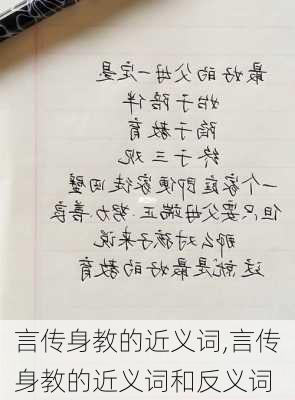 最好的父母一定是
始于陪伴
陷于教育
终于三观
一个家庭即便家徒四壁
但只要父母端正.努力.善良
那么对孩子来说
这就是最好的教育
言传身教的近义词,言传
身教的近义词和反义词